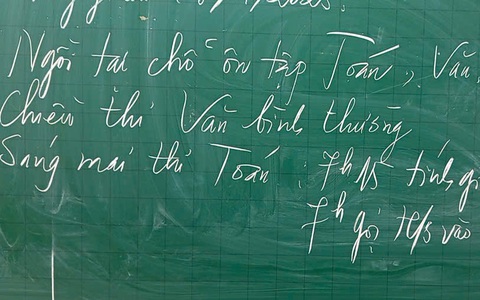 Ngồi tại chỗ ôn tập Toán, Văn,
Chiều thi Văn bình thường
Sáng mai thi Toán : 7h HS tính gi
7h gọi HS vào